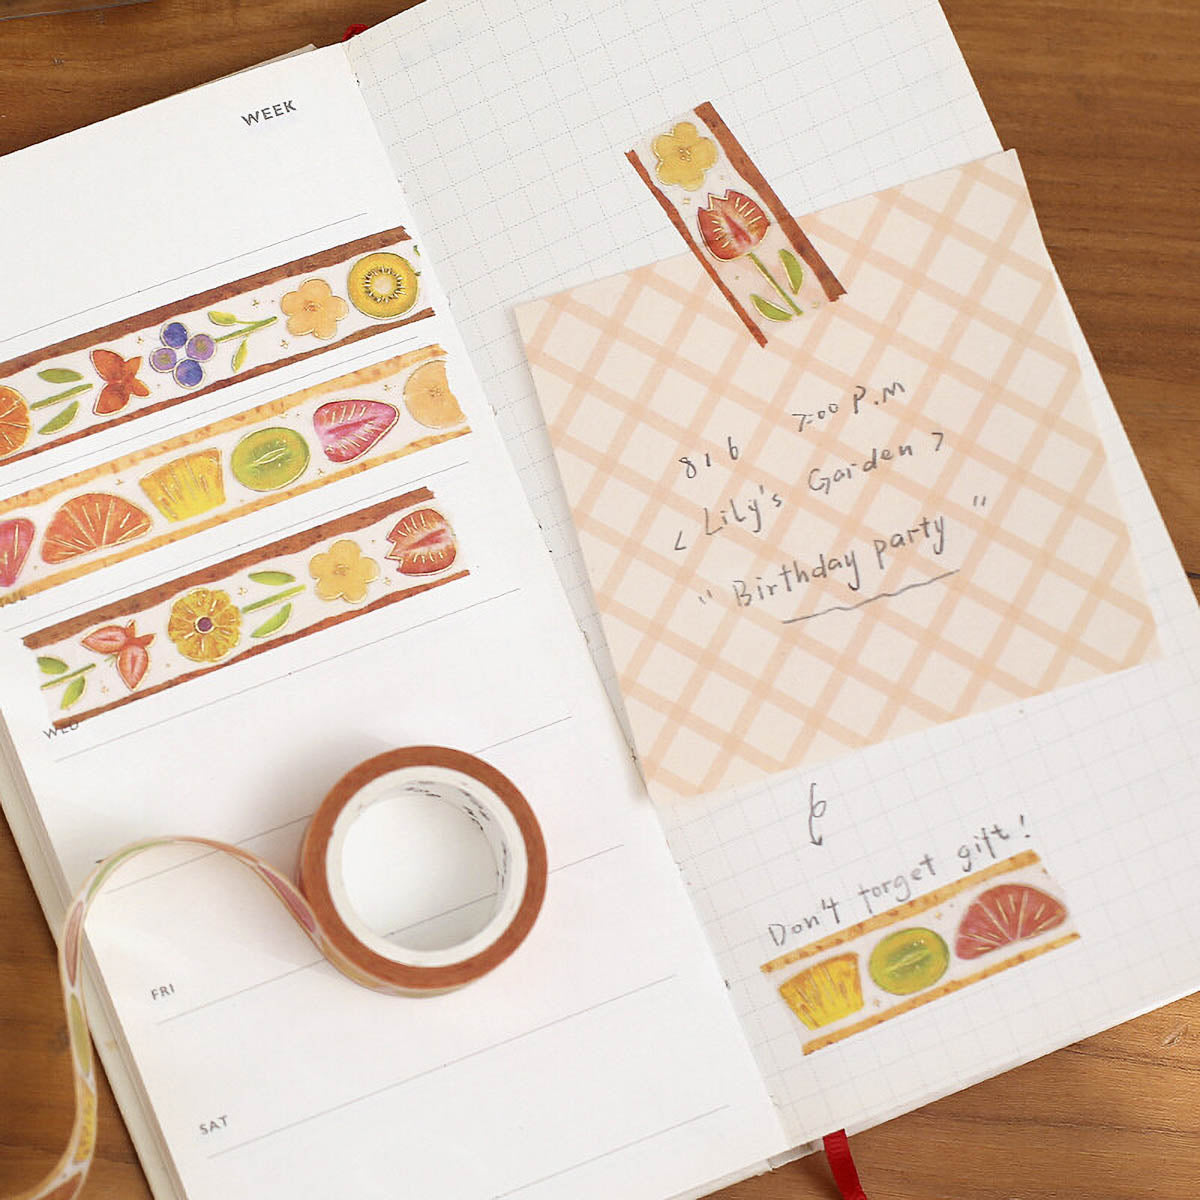 WEEK
TUE
WED
FRI
SAT
816 7:00 P.M
< Lily's Garden >
"Birthday party"
Don't forget gift!